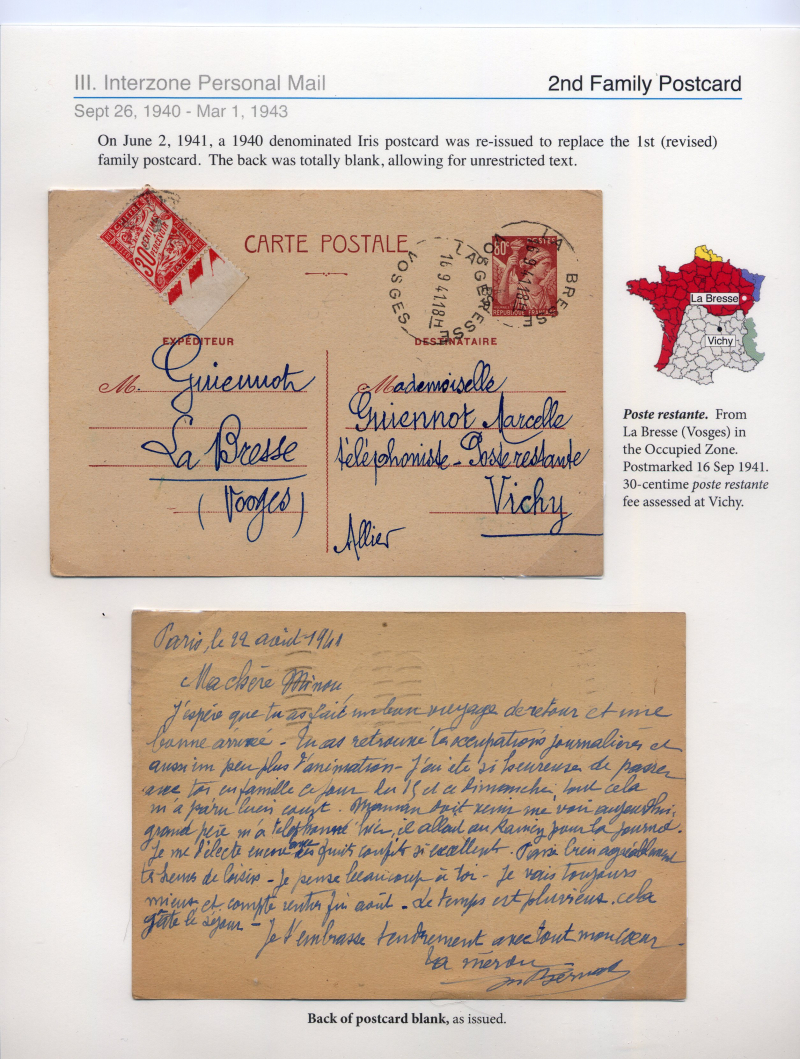 III. Interzone Personal Mail
2nd Family Postcard
Sept 26, 1940 - Mar 1, 1943
On June 2, 1941, a 1940 denominated Iris postcard was re-issued to replace the 1st (revised)
family postcard. The back was totally blank, allowing for unrestricted text.
30 CENTIMES
CARTE POSTALE
80c
POSTES
RÉPUBLIQUE FRANÇAISE
LA BRESSE
VOSGES
16 9 41 18H
LA BRESSE
VOSGES
16 9 41 18H
EXPÉDITEUR
DESTINATAIRE
M. Guiennot
La Bresse
(Vosges)
Mademoiselle
Guiennot Marcelle
téléphoniste - Poste restante
Vichy
Allier
La Bresse
Vichy
Poste restante. From
La Bresse (Vosges) in
the Occupied Zone.
Postmarked 16 Sep 1941.
30-centime poste restante
fee assessed at Vichy.
Paris, le 22 août 1941
Ma chère Minou
J'espère que tu as fait un bon voyage de retour et une
bonne arrivée - Tu as retrouvé tes occupations journalières et
aussi un peu plus d'animation - J'ai été si heureuse de passer
avec toi en famille ce jour du 15 et ce dimanche, tout cela
m'a paru bien court. Maman doit venir me voir aujourd'hui,
grand père m'a téléphoné hier, il allait au Raincy pour la journée.
Je me délecte encore avec tes fruits confits si excellents. Passe bien agréablement
tes heures de loisirs - Je pense beaucoup à toi - Je vais toujours
mieux et compte rentrer fin août - Le temps est pluvieux, cela
gâte le séjour - Je t'embrasse tendrement avec tout mon cœur
Back of postcard blank, as issued.